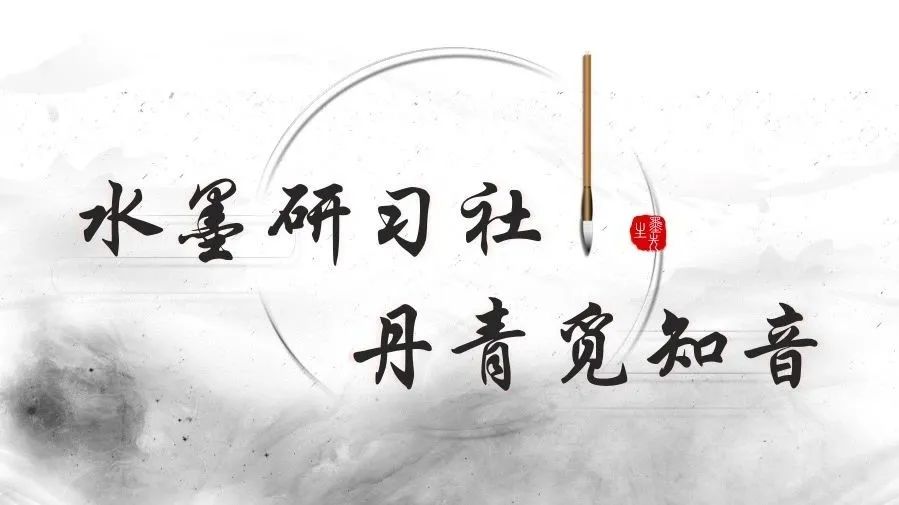 水墨研习社
丹青觅知音